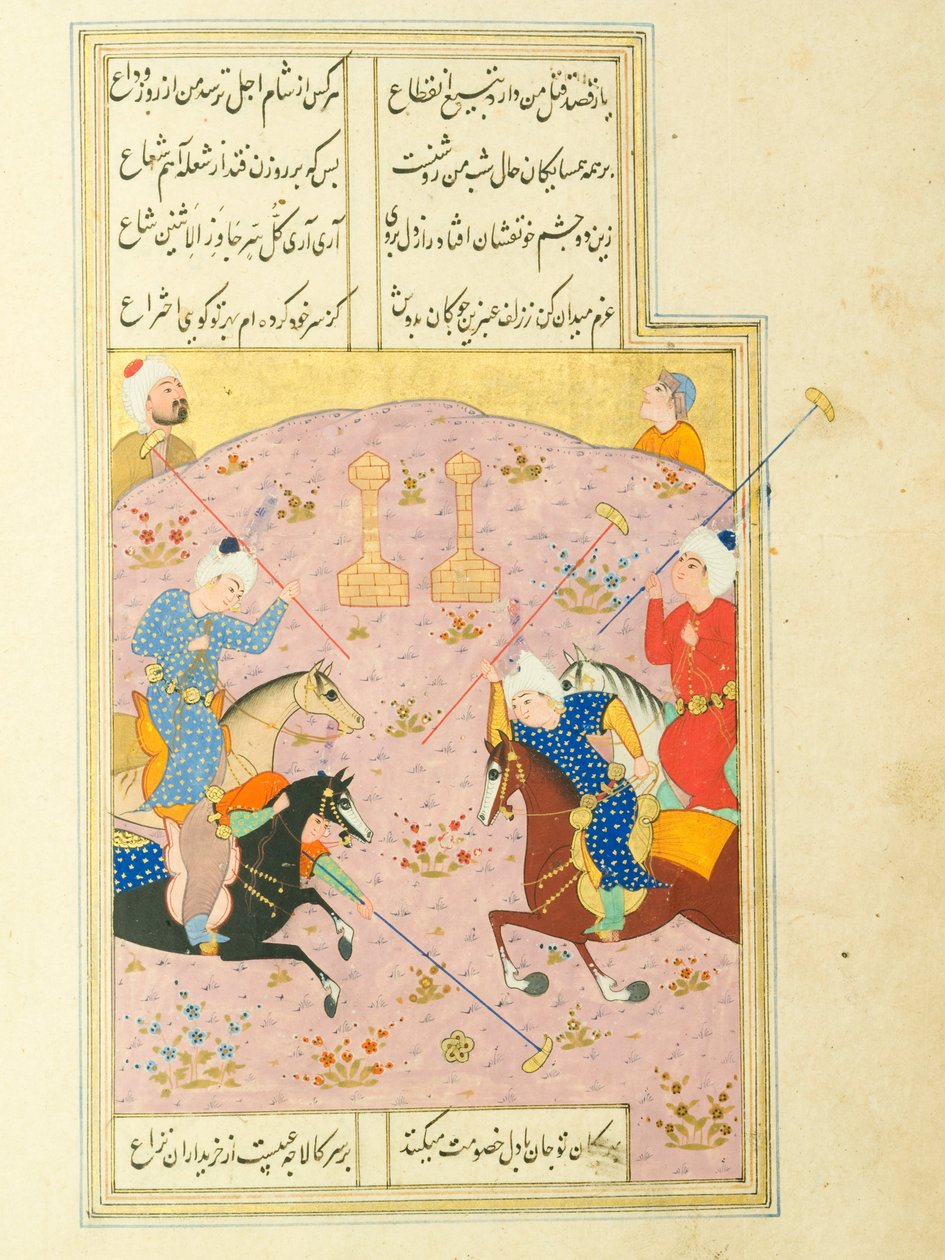 باز قصد قتل من دارد بتیغ انقطاع هر کس از شام اجل ترسد من از روز وداع
بر همه همسایکان حال شب من روشنست بس که بر روزن فتد از شعله آهم شعاع
زین دو چشم خونفشان افتاد راز دل بروی آری آری کُلُّ سِرٍّ جَاوَزَ الاِثنین شاع
عزم میدان کن ز زلف عنبرین چوکان بدوش کز سر خود کرده ام بهر تو کویی اختراع
تو جان با دل خصومت میکنند بر سر کالا چه عیبست از خریداران نزاع